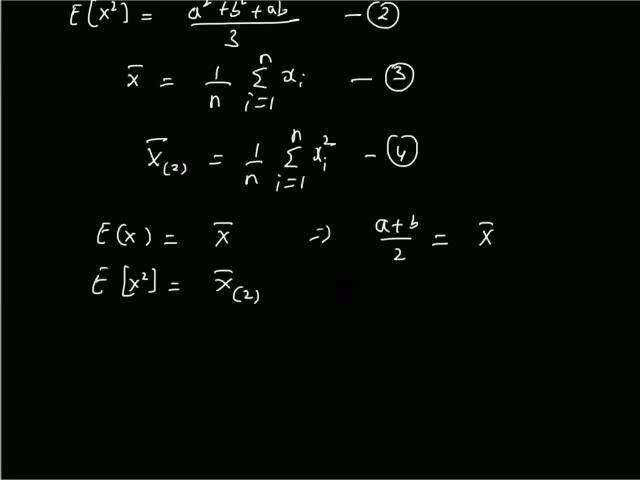 E[x²] = (a² + b² + ab)/3 — ②
x̄ = 1/n Σ_{i=1}^{n} xᵢ — ③
x̄₍₂₎ = 1/n Σ_{i=1}^{n} xᵢ² — ④
E(x) = x̄ ⇒ (a+b)/2 = x̄
E[x²] = x̄₍₂₎